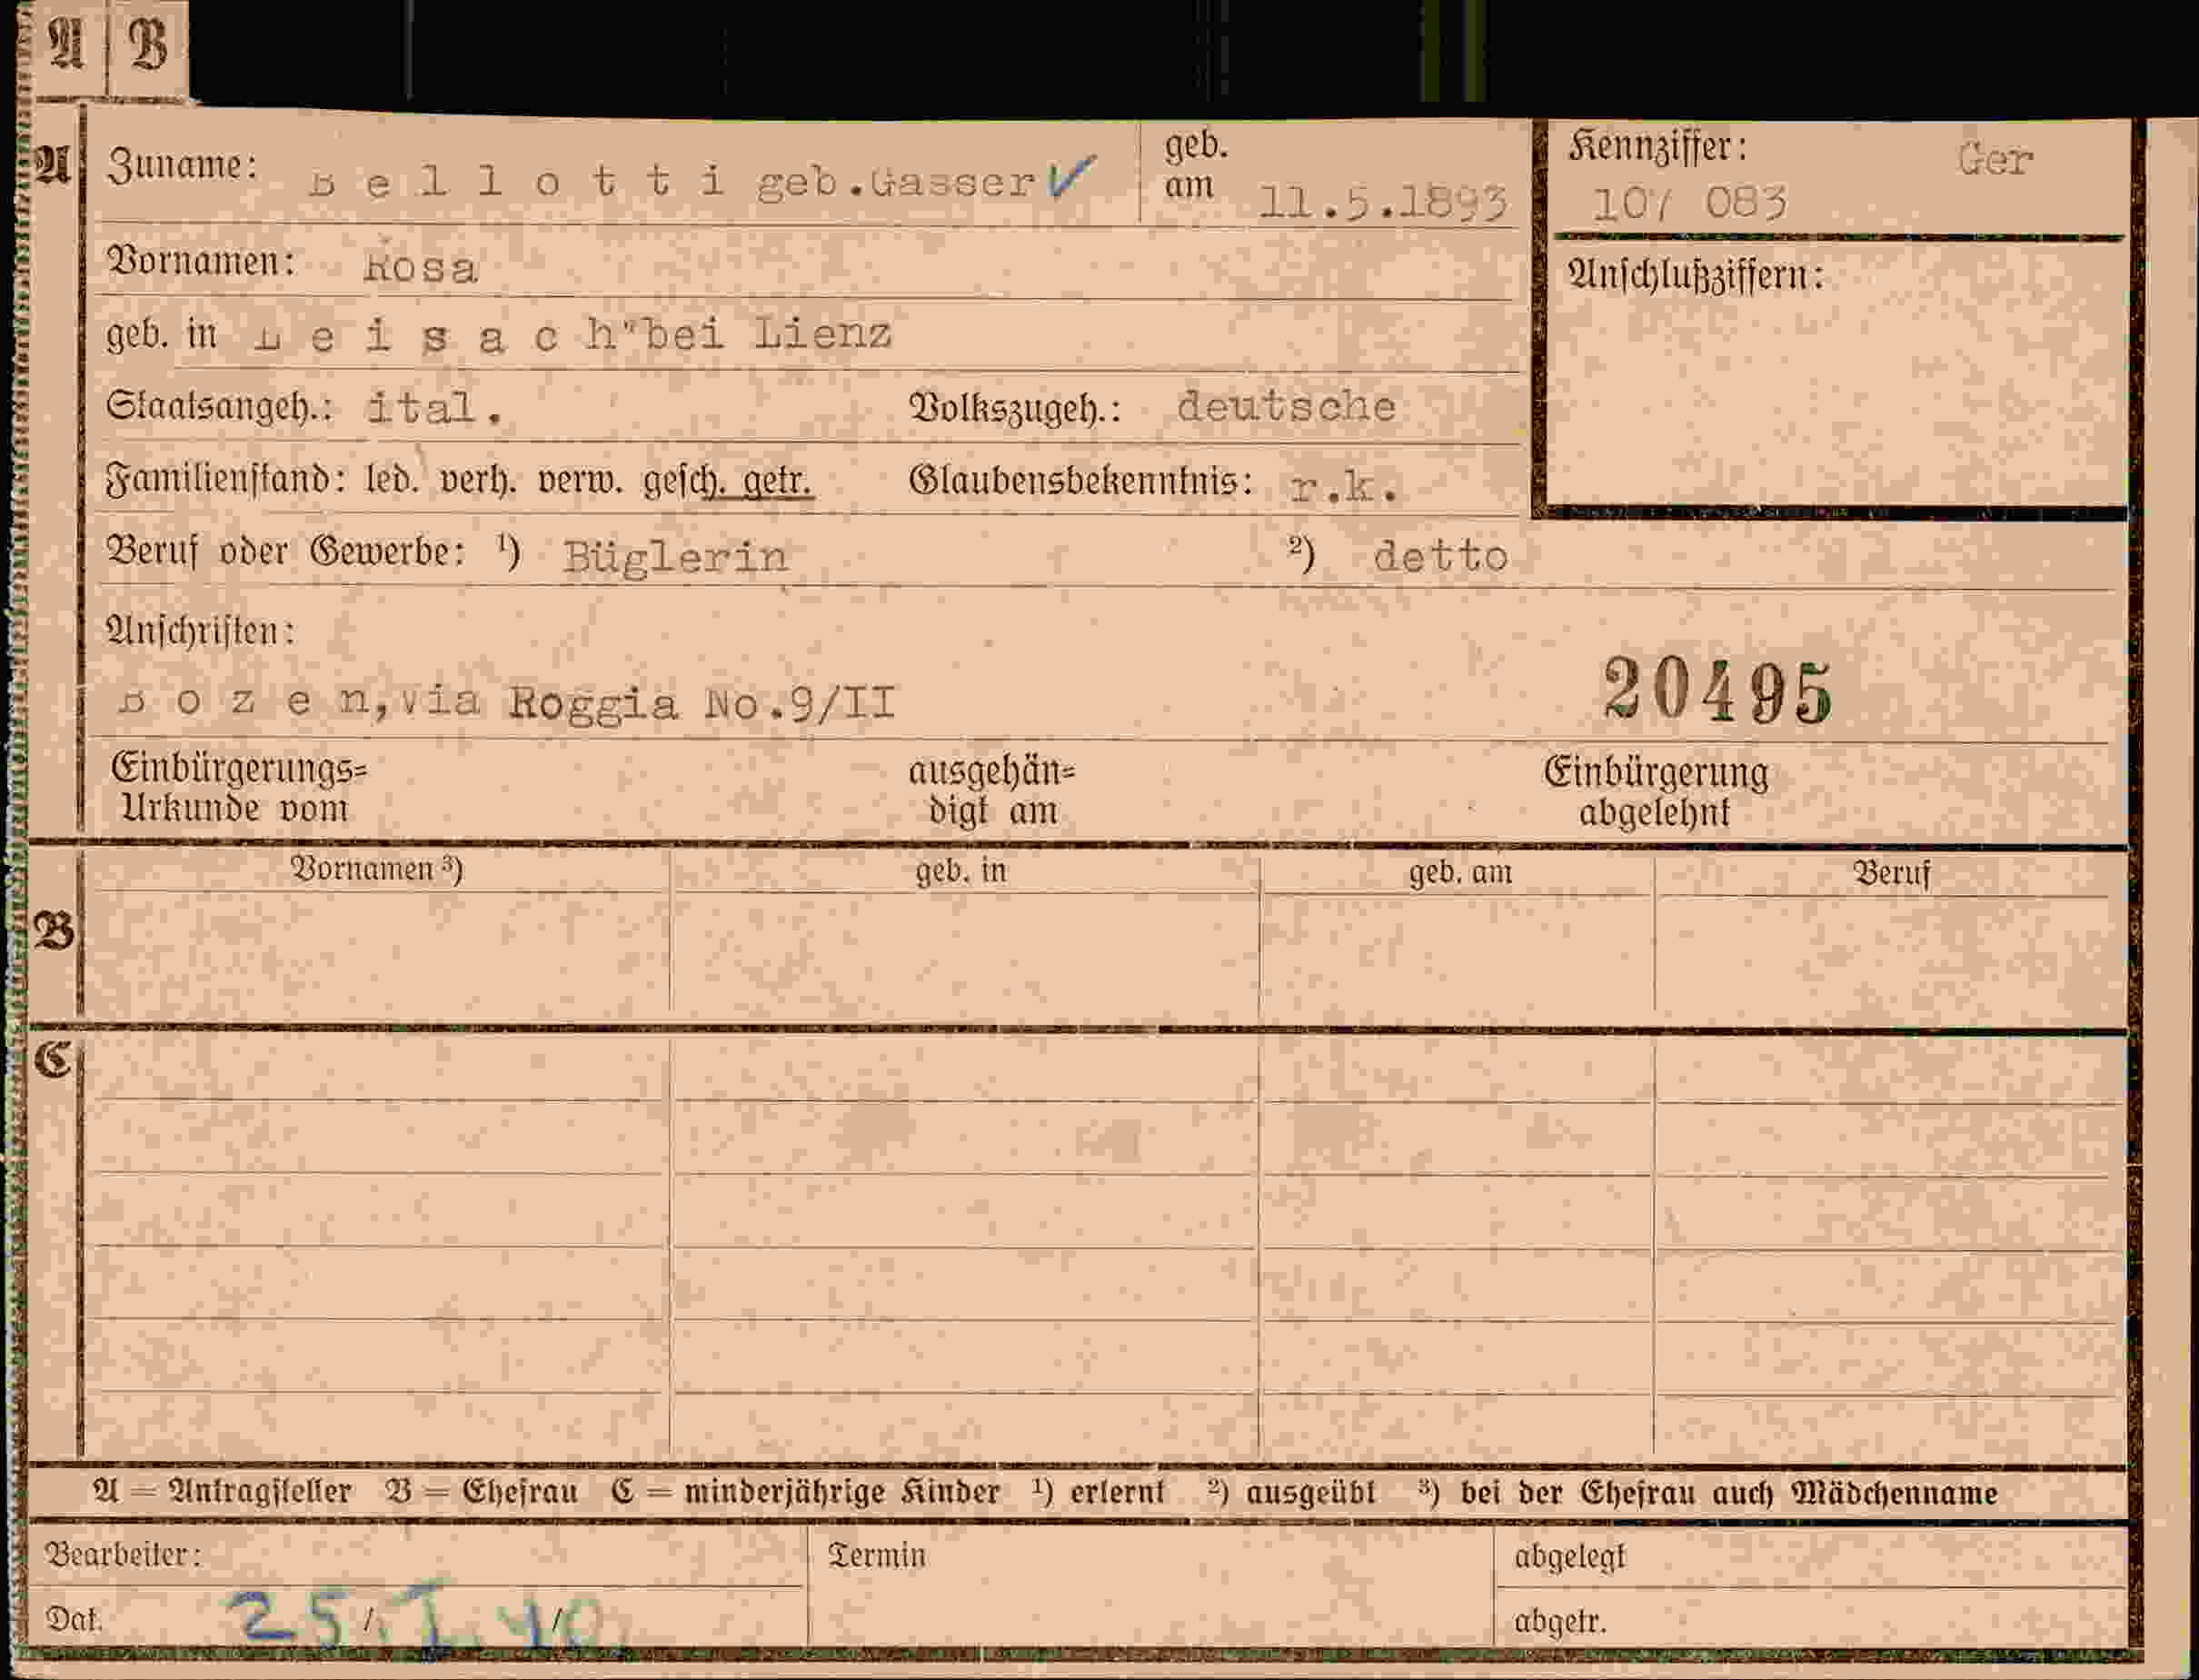 A B
A Zuname: Bellotti geb.Gasser geb. am 11.5.1893 Kennziffer: Ger
107 083
Vornamen: Rosa Anschlußziffern:
geb. in Leisach"bei Lienz
Staatsangeh.: ital. Volkszugeh.: deutsche
Familienstand: led. verh. verw. gesch. getr. Glaubensbekenntnis: r.k.
Beruf oder Gewerbe: 1) Büglerin 2) detto
Anschriften:
20495
Bozen,via Roggia No.9/II
Einbürgerungs= ausgehän= Einbürgerung
Urkunde vom digt am abgelehnt
Vornamen 3) geb. in geb. am Beruf
B
C
A = Antragsteller B = Ehefrau C = minderjährige Kinder 1) erlernt 2) ausgeübt 3) bei der Ehefrau auch Mädchenname
Bearbeiter: Termin abgelegt
Dat. 25/I 4/0 abgetr.